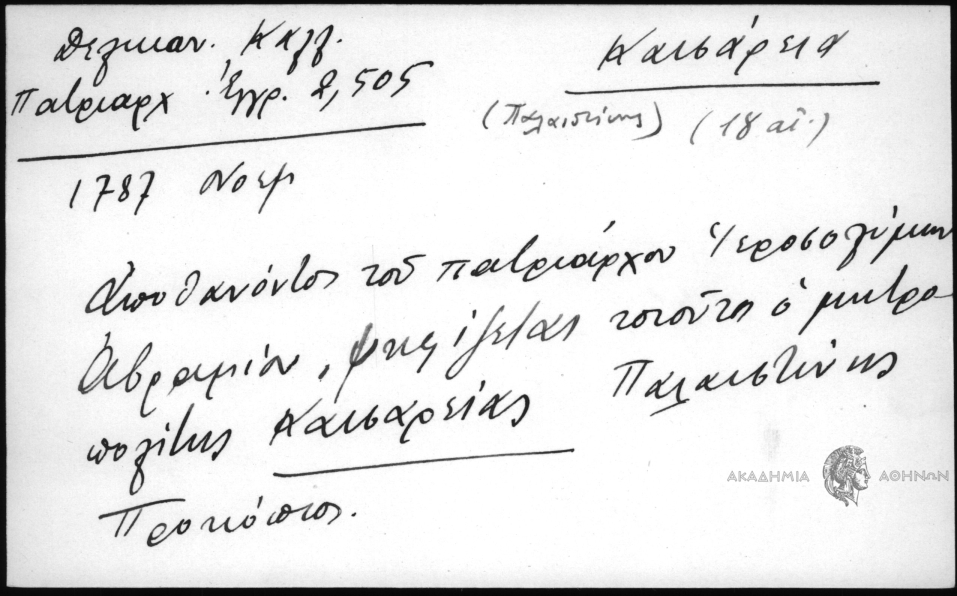 Δελικαν. Καλλ.
Πατριαρχ. Έγγρ. 2,505
Καισάρεια
(Παλαιστίνης) (18 αἰ.)
1787 Νοεμ
Ἀποθανόντος τοῦ πατριάρχου Ἱεροσολύμων
Ἀβραμίου, ψηφίζεται τοιοῦτος ὁ μητρο-
πολίτης Καισαρείας Παλαιστίνης
Προκόπιος.
ΑΚΑΔΗΜΙΑ ΑΘΗΝΩΝ